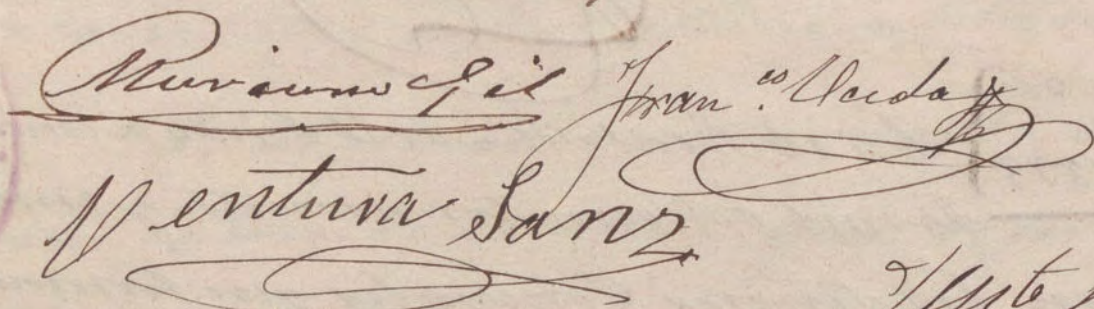 Mariano Gil Fran.co
Ventura Sanz